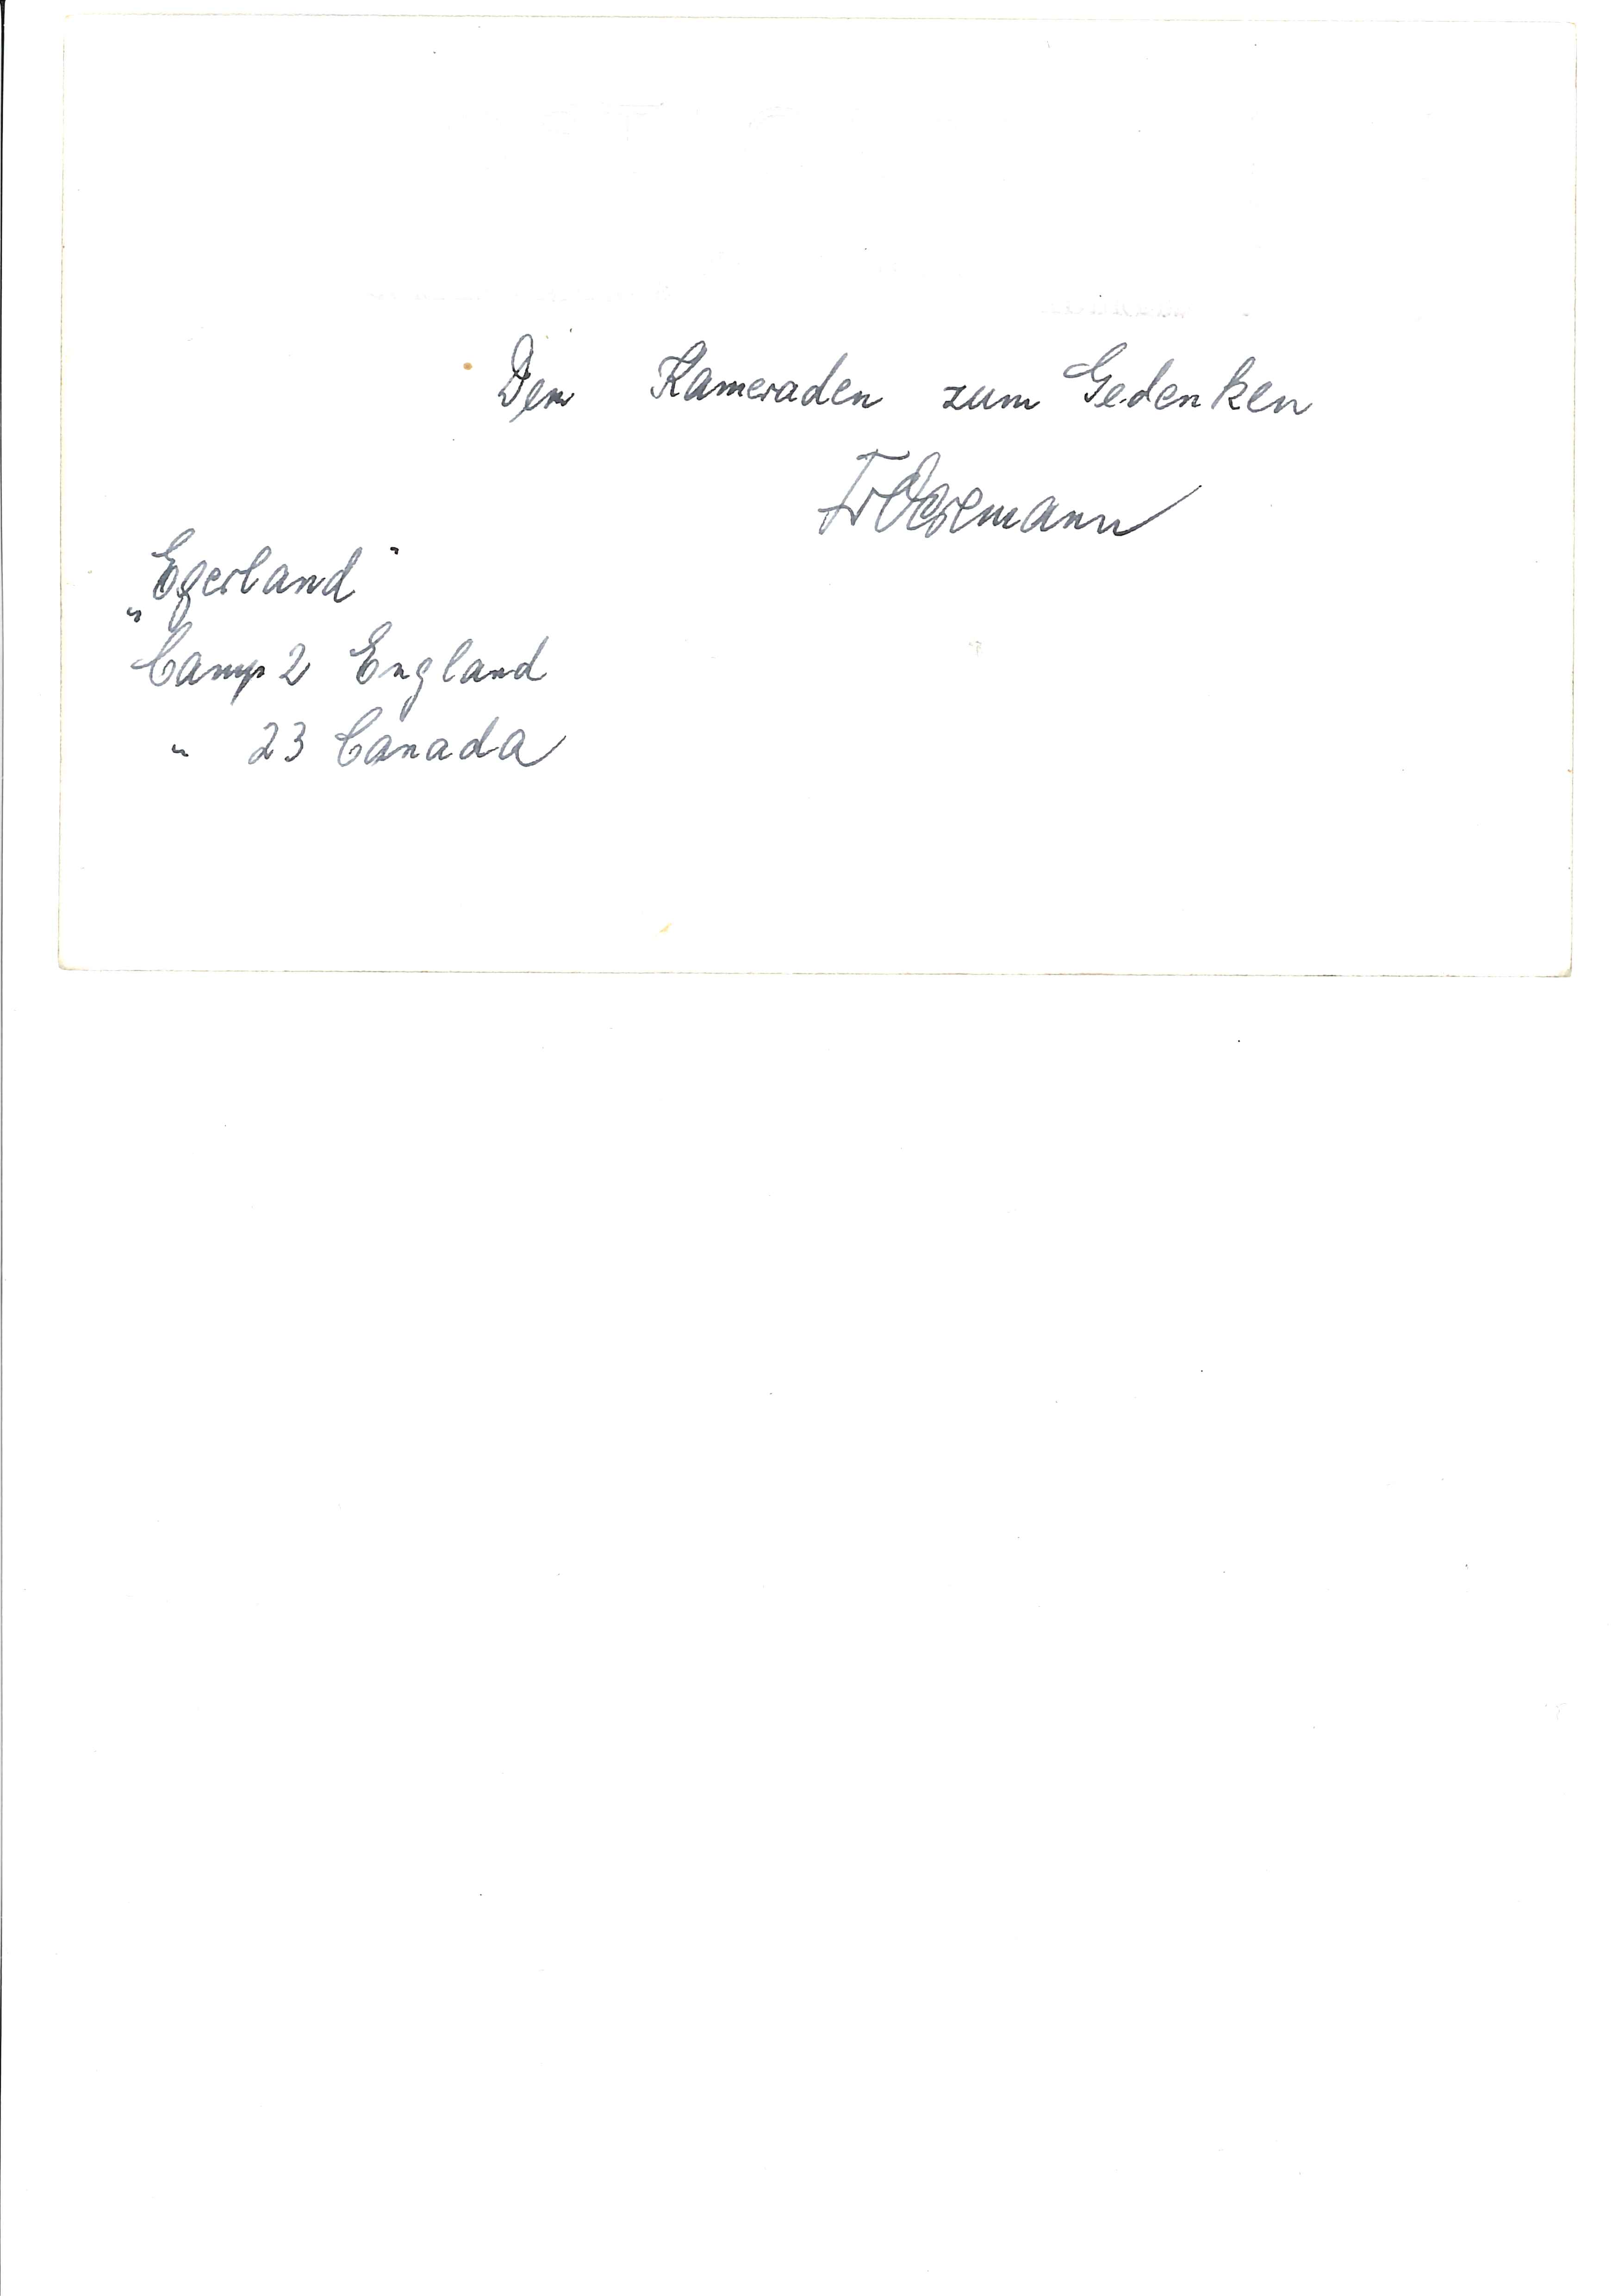 Dem Kameraden zum Gedenken
„Egerland"
Camp 2 England
" 23 Canada